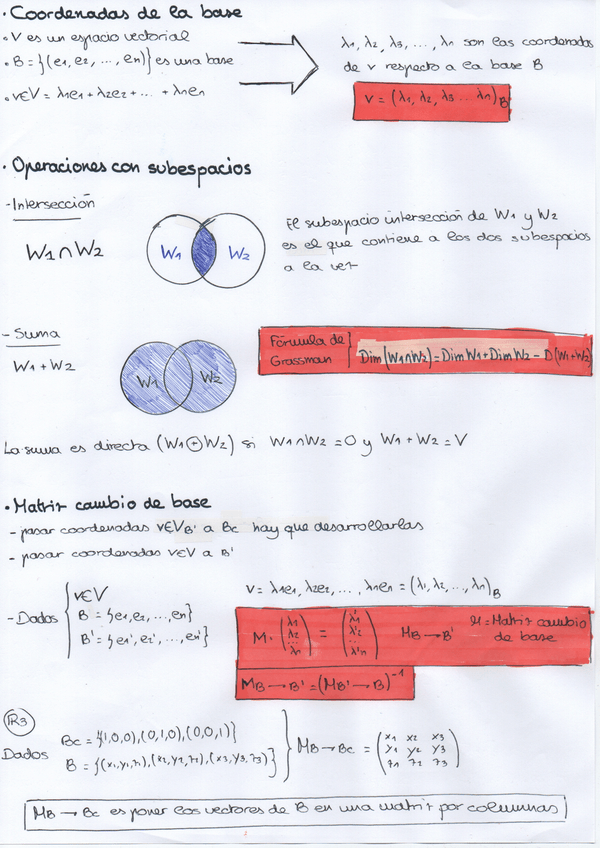 · Coordenadas de la base
· V es un espacio vectorial
· B = {(e1, e2, ..., en)} es una base
· v∈V = λ1e1 + λ2e2 + ... + λnen
λ1, λ2, λ3, ..., λn son las coordenadas
de v respecto a la base B
V = (λ1, λ2, λ3 ... λn)B
· Operaciones con subespacios
- Intersección
W1 ∩ W2
W1 W2
El subespacio intersección de W1 y W2
es el que contiene a los dos subespacios
a la vez
- Suma
W1 + W2
W1 W2
Fórmula de
Grassman
Dim (W1∩W2) = Dim W1 + Dim W2 - D(W1+W2)
La suma es directa (W1 ⊕ W2) si W1 ∩ W2 = 0 y W1 + W2 = V
· Matriz cambio de base
- pasar coordenadas v∈VB' a Bc hay que desarrollarlas
- pasar coordenadas v∈V a B'
- Dados
v∈V
B = {e1, e2, ..., en}
B' = {e1', e2', ..., en'}
V = λ1e1, λ2e2, ..., λnen = (λ1, λ2, ..., λn)B
M · (λ1 λ2 ... λn) = (λ'1 λ'2 ... λ'n) MB → B'
M = Matriz cambio
de base
MB → B' = (MB' → B)⁻¹
R3
Dados
Bc = {(1,0,0), (0,1,0), (0,0,1)}
B = {(x1,y1,z1), (x2,y2,z2), (x3,y3,z3)}
MB → Bc =
x1 x2 x3
y1 y2 y3
z1 z2 z3
MB → Bc es poner los vectores de B en una matriz por columnas